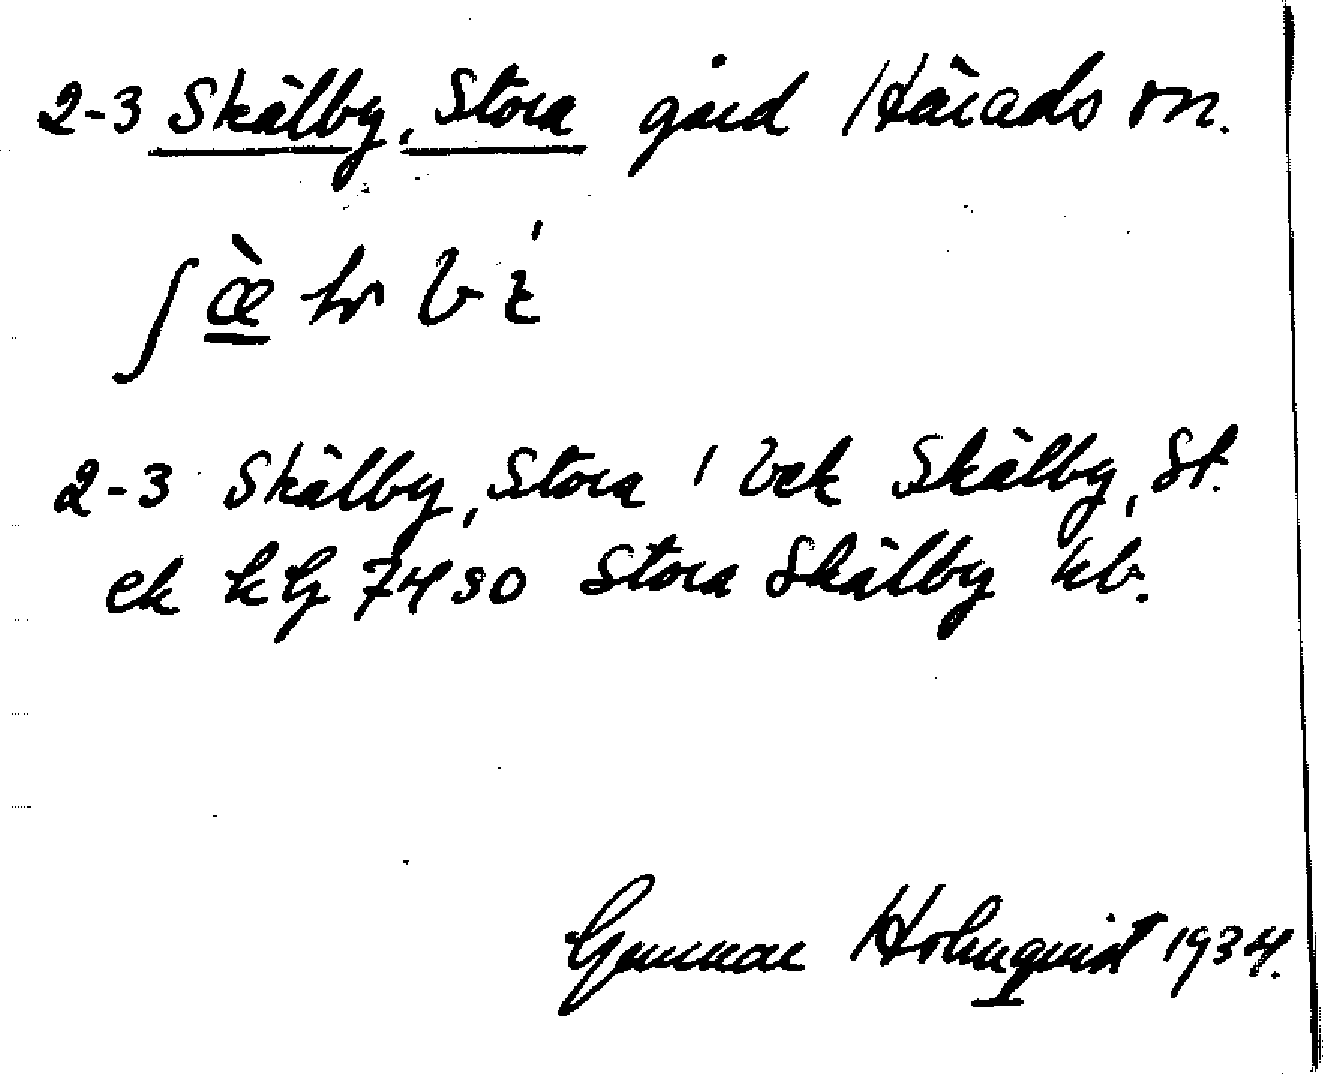 2-3 Skälby, Stora gård Härads sn.
2-3 Skälby, Stora 1 bek Skälby, St.
ek kG 7450 Stora Skälby kb.
Gunnar Holmquist 1934.